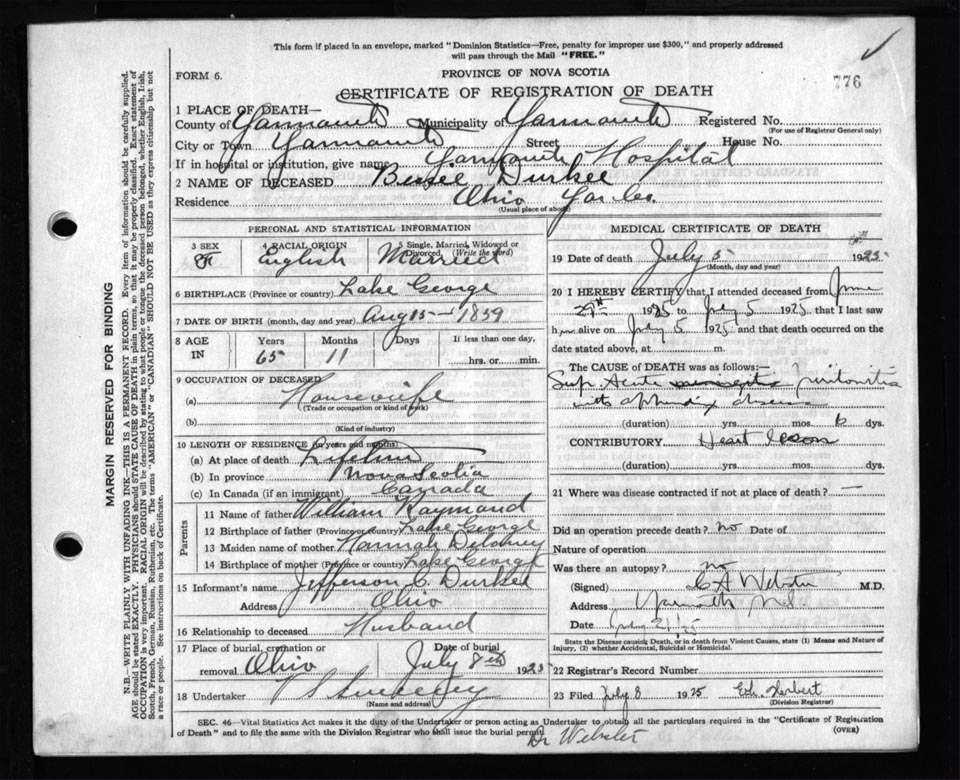 This form if placed in an envelope, marked "Dominion Statistics—Free, penalty for improper use $300," and properly addressed
will pass through the Mail "FREE."
FORM 6.
PROVINCE OF NOVA SCOTIA
776
CERTIFICATE OF REGISTRATION OF DEATH
1 PLACE OF DEATH—
County of Yarmouth Municipality of Yarmouth Registered No.
(For use of Registrar General only)
City or Town Yarmouth Street House No.
If in hospital or institution, give name Yarmouth Hospital
2 NAME OF DECEASED Bessie Durkee
Residence Ohio Yar. Co.
(Usual place of abode)
PERSONAL AND STATISTICAL INFORMATION
3 SEX
4 RACIAL ORIGIN English
5 Single, Married, Widowed or Divorced (Write the word) Married
6 BIRTHPLACE (Province or country) Lake George
7 DATE OF BIRTH (month, day and year) Aug 15—1859
8 AGE IN Years 65 Months 11 Days If less than one day, hrs. or min.
9 OCCUPATION OF DECEASED
(a) Housewife
(Trade or occupation or kind of work)
(b)
(Kind of industry)
10 LENGTH OF RESIDENCE (in years and months)
(a) At place of death Lifetime
(b) In province Nova Scotia
(c) In Canada (if an immigrant) Canada
Parents
11 Name of father William Raymond
12 Birthplace of father (Province or country) Lake George
13 Maiden name of mother Hannah
14 Birthplace of mother (Province or country) Lake George
15 Informant's name Jefferson C. Durkee
Address Ohio
16 Relationship to deceased Husband
17 Place of burial, cremation or removal Ohio Date of burial July 8th 1925
18 Undertaker V S Sweeney
(Name and address)
MEDICAL CERTIFICATE OF DEATH
19 Date of death July 5 1925
(Month, day and year)
20 I HEREBY CERTIFY that I attended deceased from June
29th 1925 to July 5 1925 that I last saw
her alive on July 5 1925 and that death occurred on
date stated above, at m.
The CAUSE OF DEATH was as follows:—
Sup. Acute peritonitis
with appendix abscess
(duration) yrs. mos. 6 dys.
CONTRIBUTORY Heart lesion
(duration) yrs. mos. dys.
21 Where was disease contracted if not at place of death? —
Did an operation precede death? no Date of
Nature of operation
Was there an autopsy? no
(Signed) C A Webster M.D.
Address Yarmouth N.S.
Date
State the Disease causing Death, or in death from Violent Causes, state (1) Means and Nature of
Injury, (2) whether Accidental, Suicidal or Homicidal.
22 Registrar's Record Number
23 Filed July 8 1925 Herbert
(Division Registrar)
SEC. 46—Vital Statistics Act makes it the duty of the Undertaker or person acting as Undertaker to obtain all the particulars required in the "Certificate of Registration
of Death" and to file the same with the Division Registrar who shall issue the burial permit.
(OVER)
Dr Webster
MARGIN RESERVED FOR BINDING
N.B.—WRITE PLAINLY WITH UNFADING INK—THIS IS A PERMANENT RECORD. Every item of information should be carefully supplied.
AGE should be stated EXACTLY. PHYSICIANS should STATE CAUSE OF DEATH in plain terms, so that it may be properly classified. Exact statement of
OCCUPATION is very important. RACIAL ORIGIN will be described by stating to what people or tongue the deceased person belonged, whether English, Irish,
Scotch, French, German, Russian, Ruthenian, etc. The terms "AMERICAN" or "CANADIAN" SHOULD NOT BE USED as they express citizenship but not
a race or people. See instructions on back of Certificate.